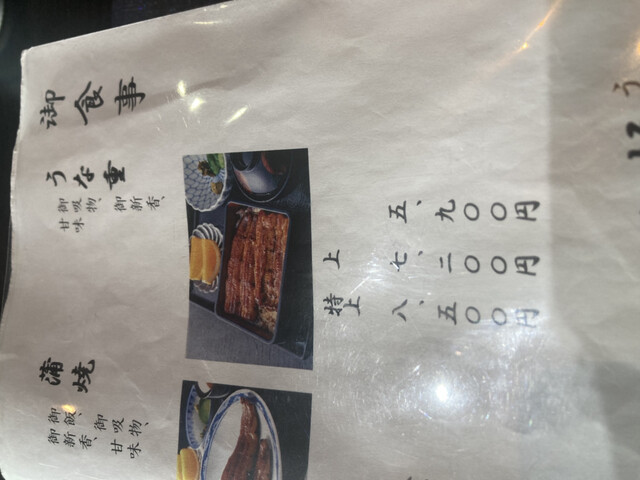 御食事
うな重
御吸物、御新香、
甘味
五、九〇〇円
上 七、二〇〇円
特上 八、五〇〇円
蒲燒
御飯、御吸物、
御新香、甘味
う